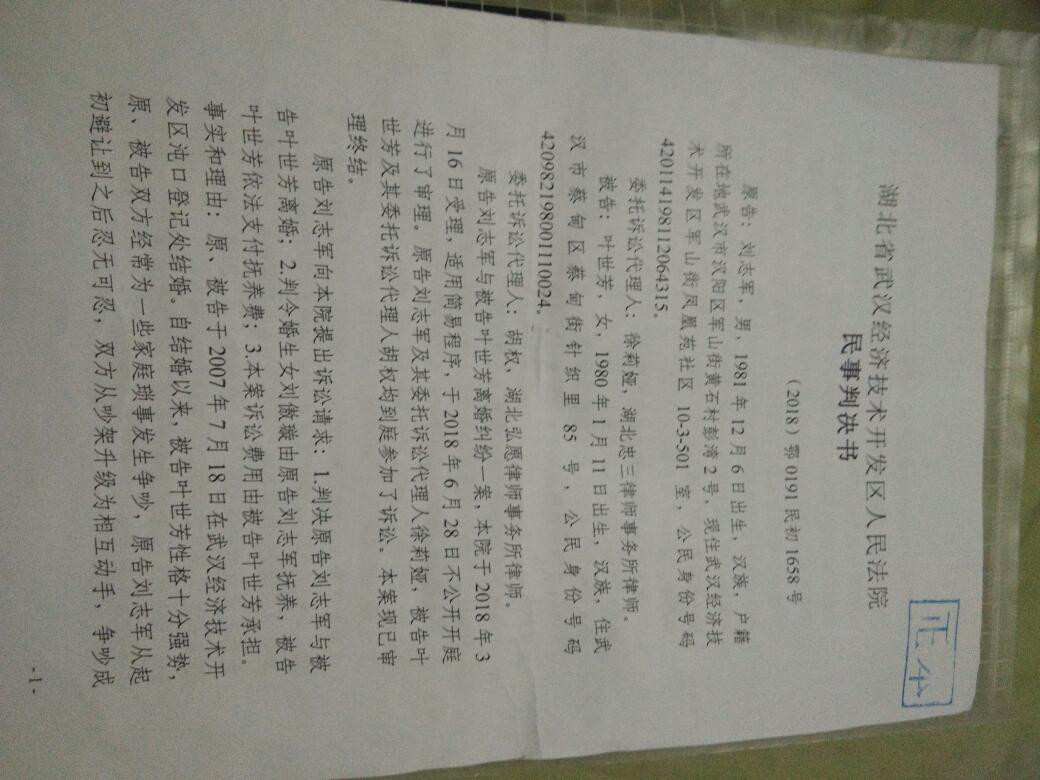 正本
湖北省武汉经济技术开发区人民法院
民事判决书
（2018）鄂0191民初1658号
原告：刘志军，男，1981年12月6日出生，汉族，户籍
所在地武汉市汉阳区军山街黄石村彭湾2号，现住武汉经济技
术开发区军山街凤凰苑社区10-3-501室，公民身份号码
420114198112064315。
委托诉讼代理人：徐莉娅，湖北忠三律师事务所律师。
被告：叶世芳，女，1980年1月11日出生，汉族，住武
汉市蔡甸区蔡甸街针织里85号，公民身份号码
420982198001110024。
委托诉讼代理人：胡权，湖北弘愿律师事务所律师。
原告刘志军与被告叶世芳离婚纠纷一案，本院于2018年3
月16日受理，适用简易程序，于2018年6月28日不公开开庭
进行了审理。原告刘志军及其委托诉讼代理人徐莉娅，被告叶
世芳及其委托诉讼代理人胡权均到庭参加了诉讼。本案现已审
理终结。
原告刘志军向本院提出诉讼请求：1.判决原告刘志军与被
告叶世芳离婚；2.判令婚生女刘傲璇由原告刘志军抚养，被告
叶世芳依法支付抚养费；3.本案诉讼费用由被告叶世芳承担。
事实和理由：原、被告于2007年7月18日在武汉经济技术开
发区沌口登记处结婚。自结婚以来，被告叶世芳性格十分强势，
原、被告双方经常为一些家庭琐事发生争吵，原告刘志军从起
初避让到之后忍无可忍，双方从吵架升级为相互动手，争吵成
-1-